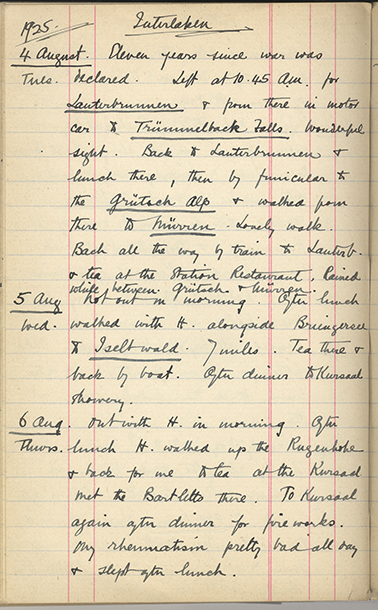 1925. Interlaken
4 August. Eleven years since war was
Tues. declared. Left at 10.45 A.m. for
Lauterbrunnen & from there in motor
car to Trümmelback Falls. Wonderful
sight. Back to Lauterbrunnen &
lunch there, then by funicular to
the Grütsch Alp & walked from
there to Mürren. Lovely walk.
Back all the way by train to Lauterb.
& tea at the Station Restaurant. Rained
while between Grütsch & Mürren.
5 Aug Not out in morning. After lunch
Wed. walked with H. alongside Brienzersee
to Iseltwald. 7 miles. Tea there &
back by boat. After dinner to Kursaal
showery.
6 Aug. Out with H. in morning. After
Thurs. lunch H. walked up the Rugenhohe
& back for me to tea at the Kursaal
met the Bartletts there. To Kursaal
again after dinner for fireworks.
My rheumatism pretty bad all day
& slept after lunch.